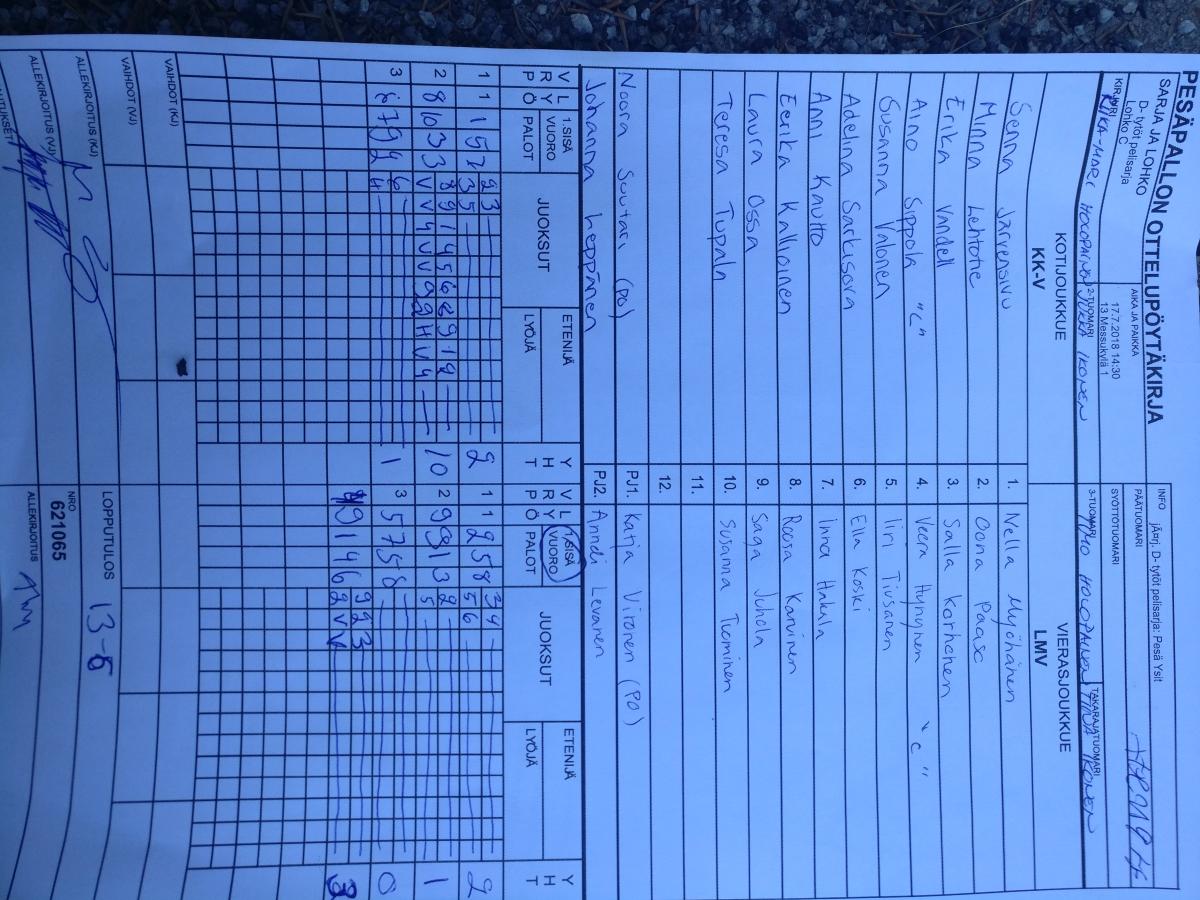 PESÄPALLON OTTELUPÖYTÄKIRJA
SARJA JA LOHKO
D- tytöt pelisarja
Lohko C
AIKA JA PAIKKA
17.7.2018 14:30
13 Messukylä 1
INFO järj. D- tytöt pelisarja: Pesä Ysit
PÄÄTUOMARI
SYÖTTÖTUOMARI
KIRJURI
RIIKA-MARI HOLOPAINEN
2-TUOMARI
JUKKA IKONEN
3-TUOMARI
HOLOPAINEN
TAKARAJATUOMARI
TINA IKONEN
KOTIJOUKKUE
KK-V
VIERASJOUKKUE
LMV
Senna Järvensivu 1. Nella Myöhänen
Minna Lehtotie 2. Oona Paaso
Erika Vandell 3. Salla Korhonen
Aino Sippola "C" 4. Veera Hynynen "C"
Susanna Valonen 5. Iiri Tiusanen
Adelina Sarkisova 6. Ella Koski
Anni Kautto 7. Inna Hakala
Eerika Kallioinen 8. Roosa Karvinen
Laura Ossa 9. Saga Juhola
Teresa Tupala 10. Susanna Tuominen
11.
12.
Noora Suutari (PO) PJ1. Katja Vironen (PO)
Johanna Leppänen PJ2. Anndi Levanen
V R P L Y Ö 1.SISÄ VUORO PALOT JUOKSUT ETENIJÄ LYÖJÄ Y H T V R P L Y Ö 1.SISÄ VUORO PALOT JUOKSUT ETENIJÄ LYÖJÄ Y H T
1 1 1 5 7 2 3 2 1 1 9 5 8 3 4 2
3 5 5 6
2 8 10 3 3 8 9 1 4 5 6 8 9 1 2 10 2 9 9 1 3 2 1
V V 4 V V 9 2 H V 4 5
3 6 7 9 2 6 1 3 5 7 5 8 0
4
9 1 4 6 9 2 3 3
2 V V
VAIHDOT (KJ)
VAIHDOT (VJ)
ALLEKIRJOITUS (KJ)
LOPPUTULOS 13-8
ALLEKIRJOITUS (VJ)
NRO
621065
ALLEKIRJOITUS